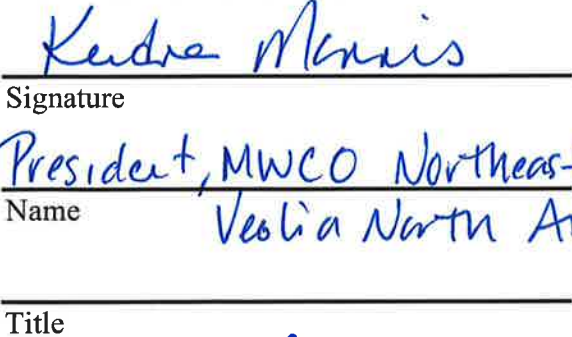 Kendra Morris
Signature
President, MWCO Northeas
Name
Veolia North A
Title